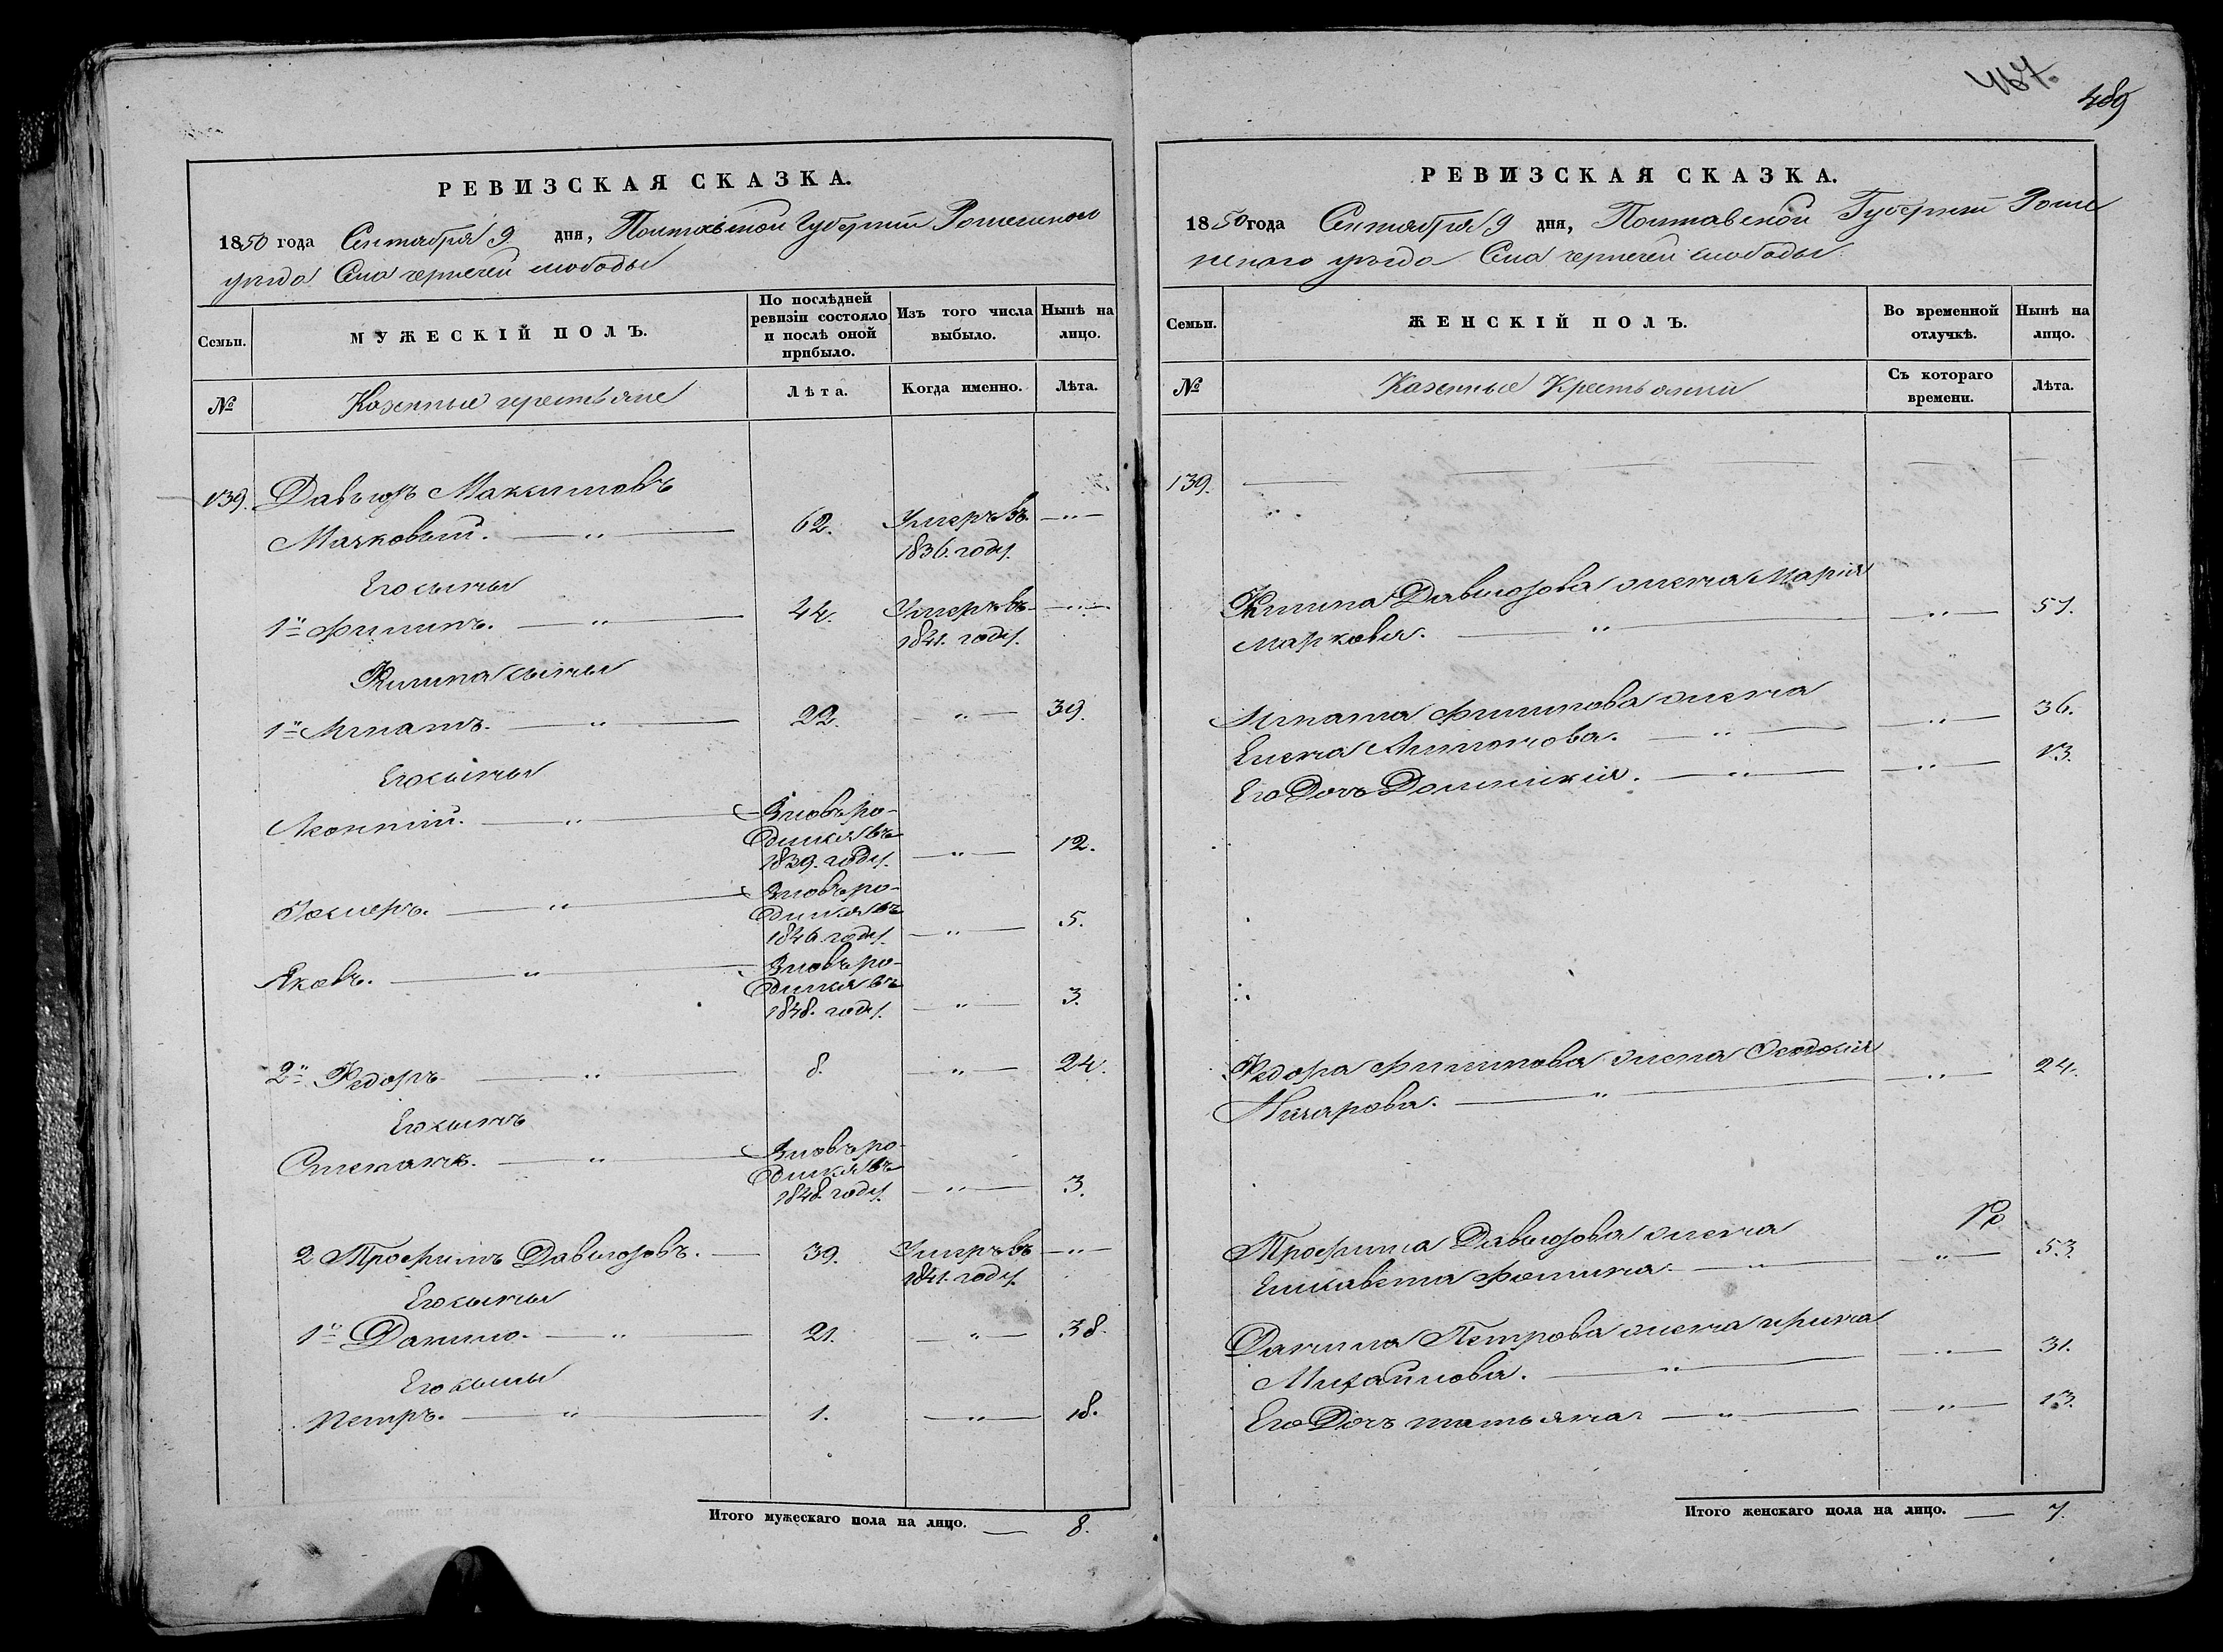 467.
489
РЕВИЗСКАЯ СКАЗКА.
1850 года Сентября 9 дня, Полтавской Губернии Роменского
уезда Села чернечей слободы
Семьи.
МУЖЕСКІЙ ПОЛЪ.
По послѣдней
ревизіи состояло
и послѣ оной
прибыло.
Изъ того числа
выбыло.
Нынѣ на
лицо.
№
Казенные крестьяне
Лѣта.
Когда именно.
Лѣта.
139. Давыдъ Максимовъ
Мачковый. — " — 62. Умеръ въ — " —
1836. году.
Его сыны
1й Филипъ. — " — 44. Умеръ въ — " —
1841. году.
Филипа сыны
1й Игнатъ. — " — 22. — " — 39.
Его сыны
Леонтий. — " — Вновь ро-
дился въ
1839. году. — " — 12.
— " — Вновь ро-
дился въ
1846 году. — " — 5.
Яковъ. — " — Вновь ро-
дился въ
1848. году. — " — 3.
2й Федоръ — " — 8. — " — 24.
Его сынъ
Степанъ. — " — Вновь ро-
дился въ
1848. году. — " — 3.
2 Трофимъ Давыдовъ. — 39. Умеръ въ — " —
1841. году.
Его сыны
1й Данило. — " — 21. — " — 38.
Его сыны
Петръ. — " — 1. — " — 18.
Итого мужескаго пола на лицо. — 8.
РЕВИЗСКАЯ СКАЗКА.
1850 года Сентября 9 дня, Полтавской Губернии Роме
нского уезда Села чернечей слободы
Семьи.
ЖЕНСКІЙ ПОЛЪ.
Во временной
отлучкѣ.
Нынѣ на
лицо.
№
Казенные Крестьянки
Съ котораго
времени.
Лѣта.
139. — — — —
Филипа Давыдова жена Мария
Маркова. — " — " — 51.
Игната Филипова жена
Елена Антонова. — " — " — 36.
Его Дочь Домникия. — " — " — 13.
Федора Филипова жена Евдокия
Назарова. — " — " — 24.
Трофима Давыдова жена
Елисавета Фомина — " — " — 53
Данила Петрова жена Ирина
Михайлова. — " — " — 31.
Его Дочь татьяна — " — " — 13.
Итого женскаго пола на лицо. — 7.